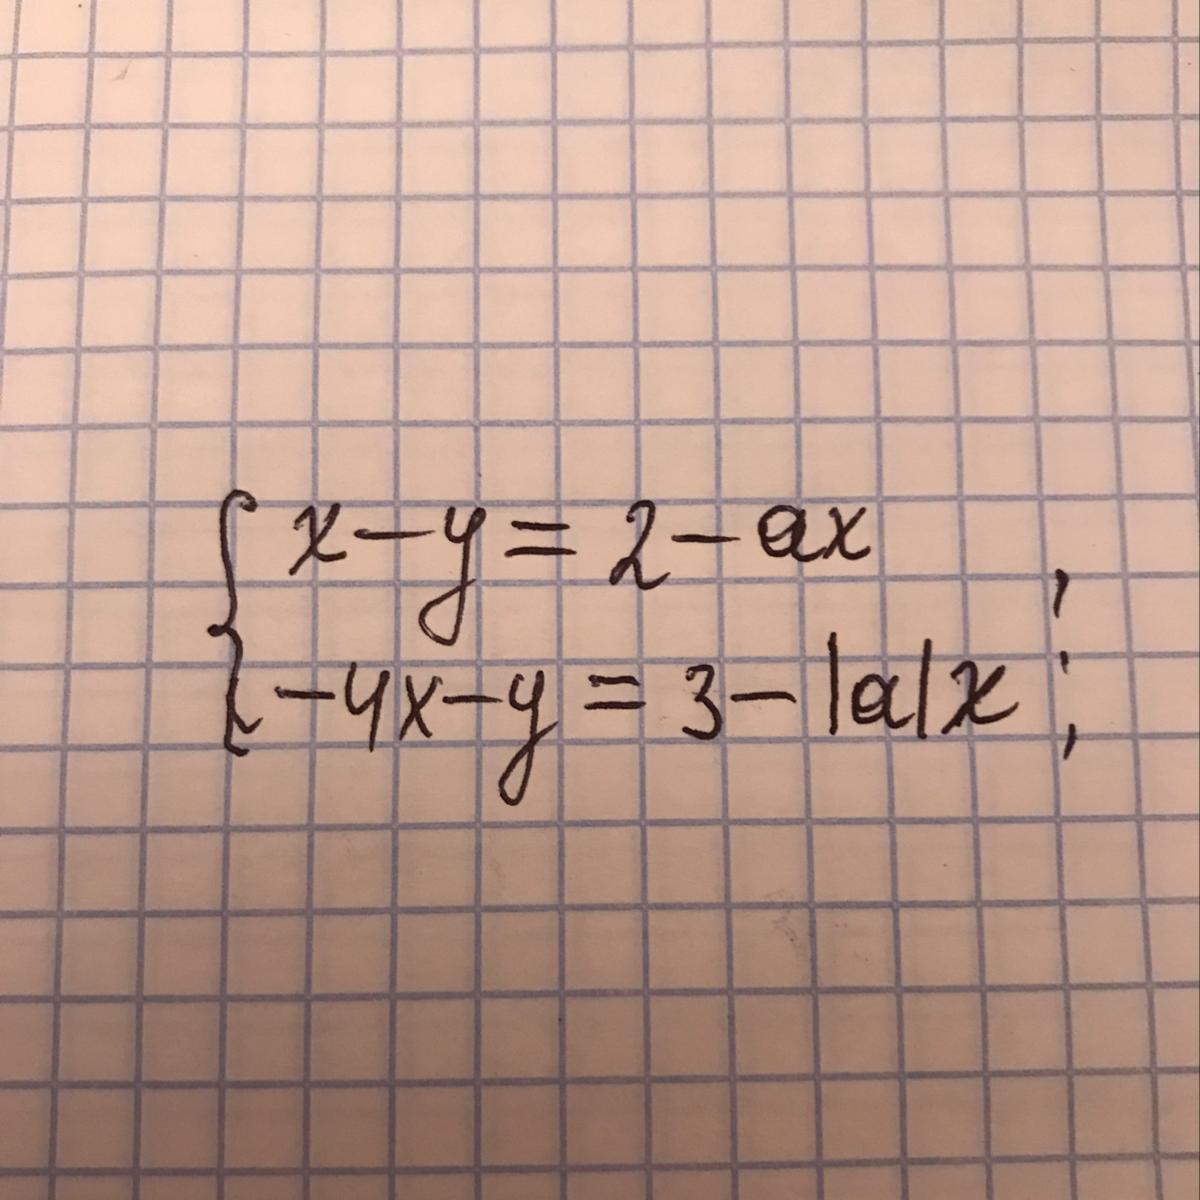 { x - y = 2 - ax
-4x - y = 3 - |a|x ;